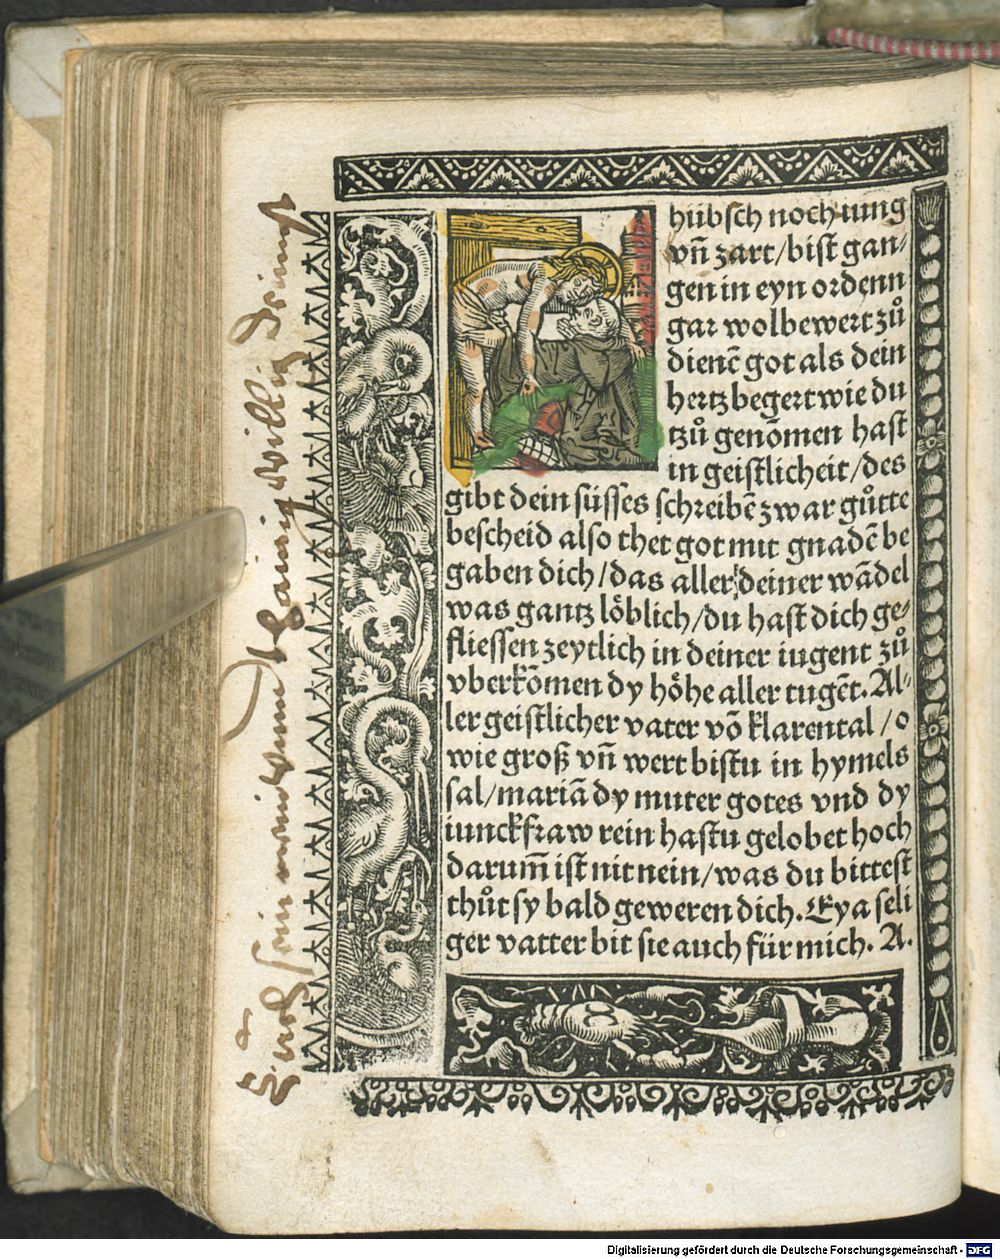 hübsch noch iung
vñ zart/bist gan⸗
gen in eyn ordenn
gar wolbewert zů
dienē got als dein
hertz begert wie du
tzů genōmen hast
in geistlicheit/des
gibt dein süsses schreibē zwar gůtte
bescheid also thet got mit gnadē be
gaben dich/das aller deiner wādel
was gantz löblich/du hast dich ge⸗
fliessen zeytlich in deiner iugent zů
vberkōmen dy höhe aller tugēt. Al⸗
ler geistlicher vater vō klarental/o
wie groß vñ wert bistu in hymels
sal/mariā dy muter gotes vnd dy
iunckfraw rein hastu gelobet hoch
darum̄ ist nit nein/was du bittest
thůt sy bald geweren dich. Eya seli
ger vatter bit sie auch für mich. A.
Digitalisierung gefördert durch die Deutsche Forschungsgemeinschaft - DFG